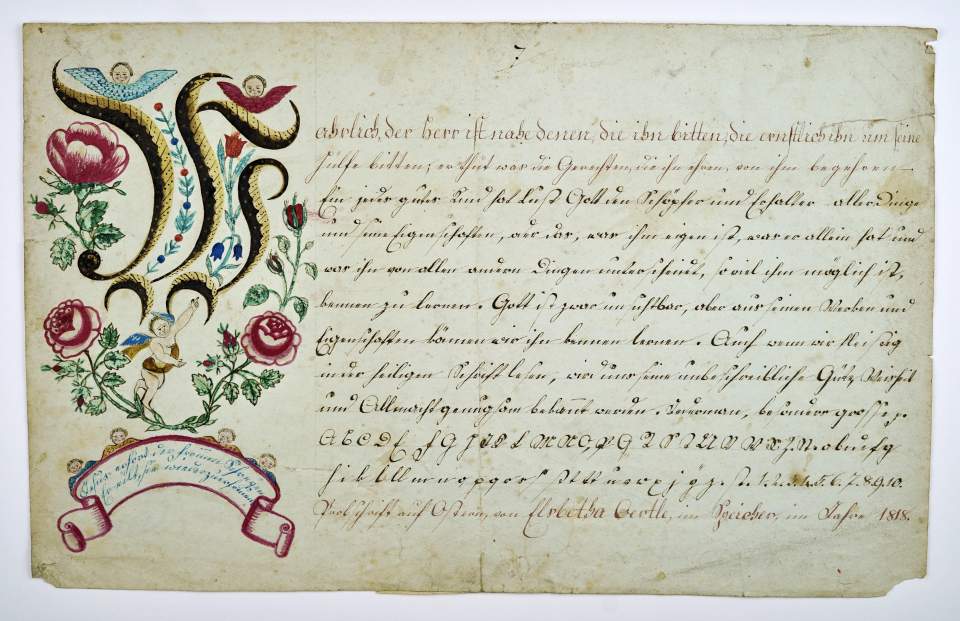 7
Wahrlich, der Herr ist nahe denen, die ihn bitten, die ernstlich ihn um seine
Hülfe bitten; er thut was die Gerechten, die ihn ehren, von ihm begehren.
Ein jedes gutes Kind hat Lust Gott den Schöpfer und Erhalter aller Dinge
und seine Eigenschaften, oder das, was ihm eigen ist, was er allein hat und
was ihn von allen andern Dingen unterscheidet, so viel ihm möglich ist,
kennen zu lernen. Gott ist zwar unsichtbar, aber aus seinen Werken und
Eigenschaften können wir ihn kennen lernen. Auch wenn wir fleissig
in der heiligen Schrift lesen, wird uns seine unbeschreibliche Güte, Weisheit
und Allmacht genugsam bekannt werden. besonders grosse
A B C D E F G H
1. 2. 3. 4. 5. 6. 7. 8. 9. 10.
Probschrift auf Ostern, von Elsbetha Oertle, im Speicher, im Jahre 1818.
Jesus der frommen